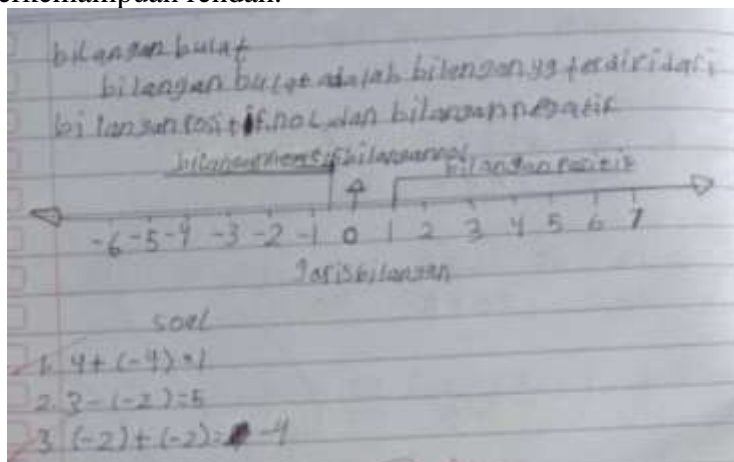 erkemampuan rendah.
bilangan bulat
bilangan bulat adalah bilangan yg terdiri dari
bilangan positif, nol, dan bilangan negatif
bilangan negatif bilangan nol bilangan positif
-6 -5 -4 -3 -2 -1 0 1 2 3 4 5 6 7
garis bilangan
soel
1. 4 + (-4) = 1
2. 3 - (-2) = 5
3 (-2) + (-2) = -4